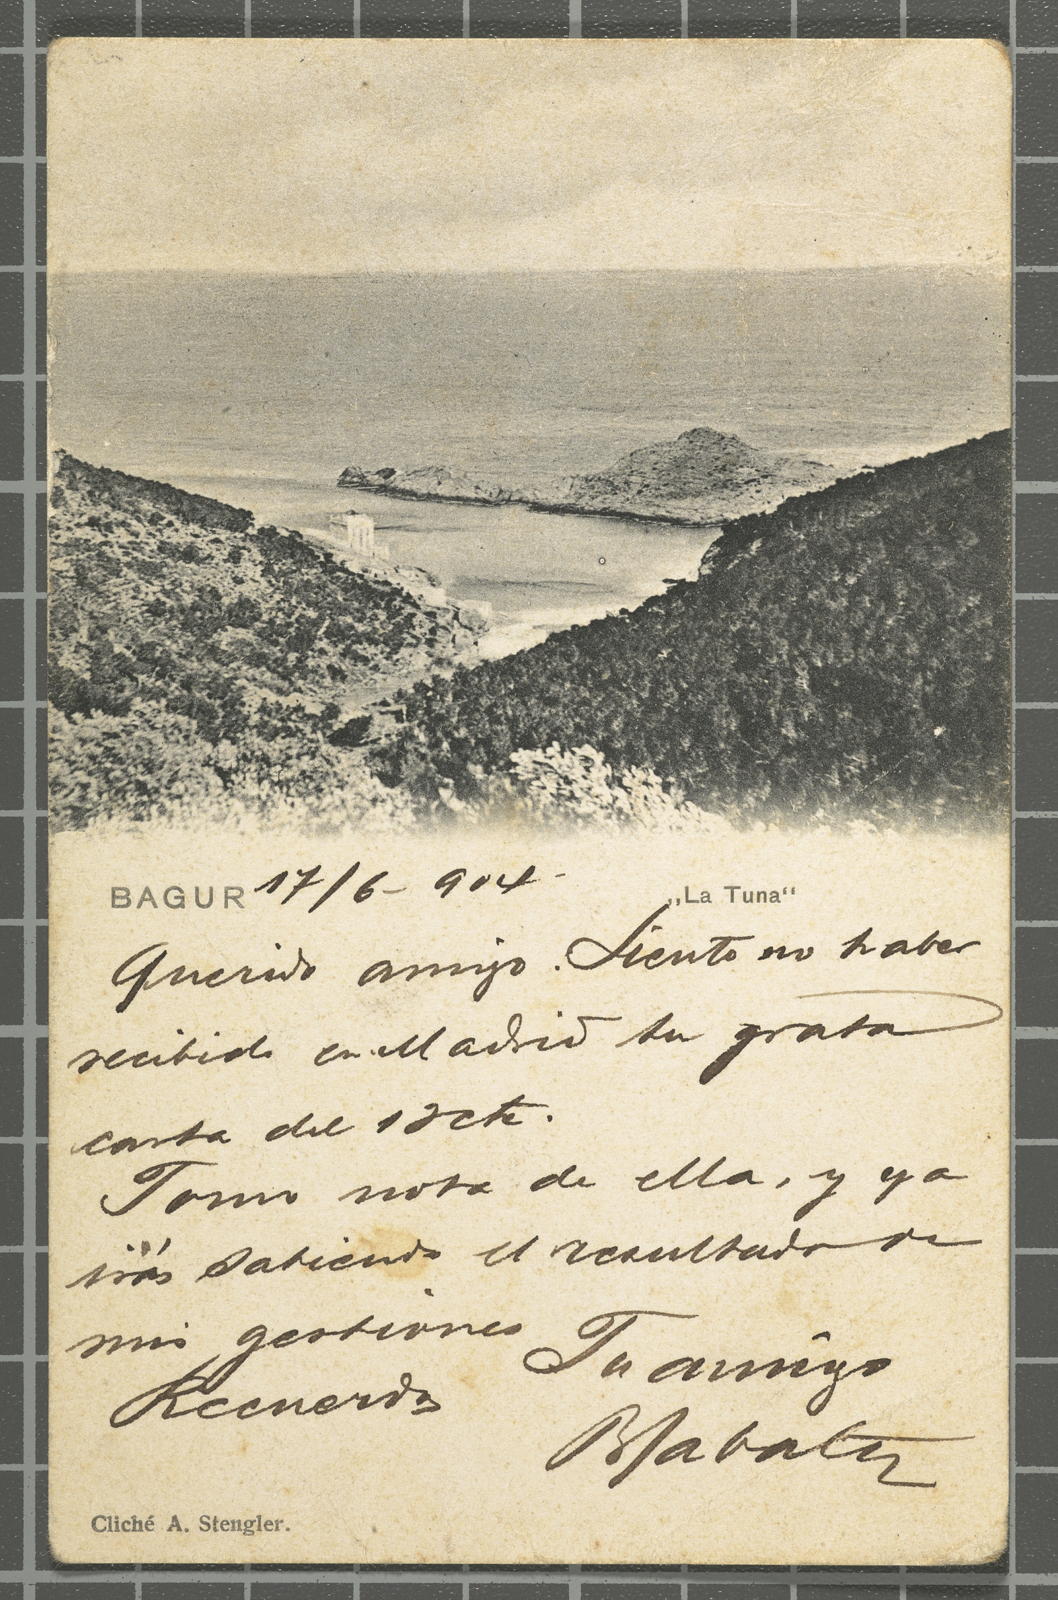 BAGUR 17/6- 904-
„La Tuna“
Querido amigo. Siento no haber
recibido en Madrid tu grata
carta del 12 cte.
Tomo nota de ella, y ya
irás sabiendo el resultado de
mis gestiones
Recuerdos
Tu amigo
Cliché A. Stengler.